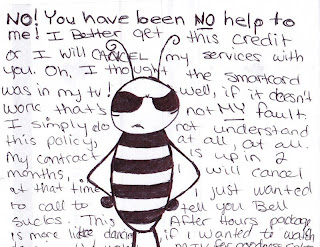 NO! You have been NO help to
me! I Better get this credit
or I Will CANCEL my services with
you. Oh, I thought the smartcard
was in my tv! Well, if it doesn't
work that's not MY fault.
I simply do not understand
this policy, at all, at all.
My contract is up in 2
months, I will cancel
at that time I just wanted
to call to tell you Bell
sucks. This After Hours package
is more like dancing if I wanted to watch